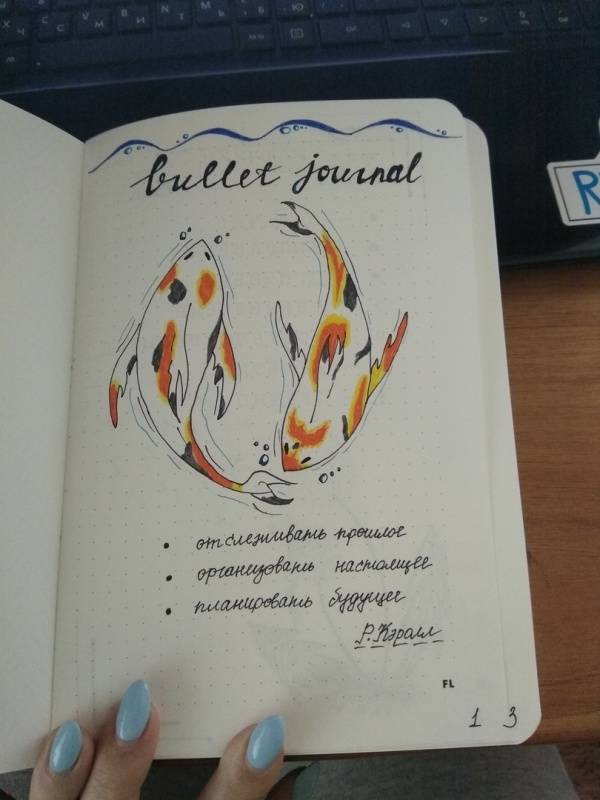 bullet journal
• отслеживать прошлое
• организовать настоящее
• планировать будущее
Р. Кэролл
FL
1 3
R